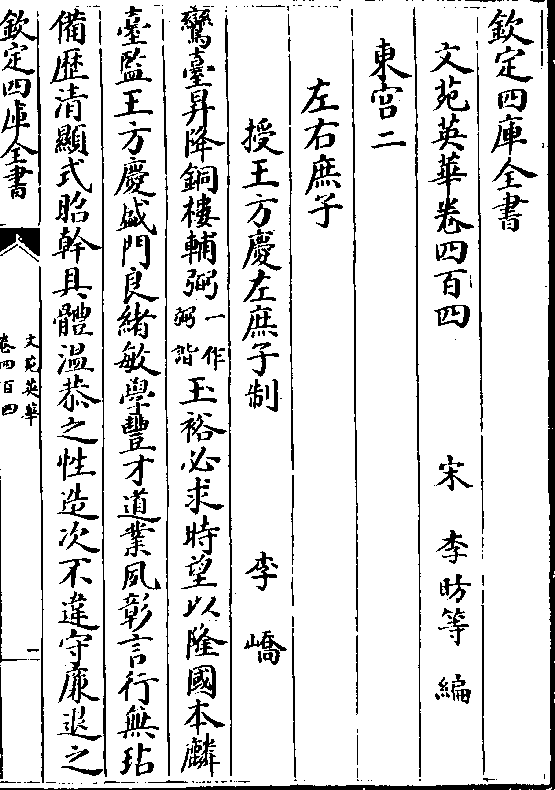 欽定四庫全書
文苑英華卷四百四　宋　李昉等　編
東宫二
左右庶子
授王方慶左庶子制　李嶠
鸞臺昇降銅樓輔弼一作弼諧王裕必求時望以隆國本麟
臺監王方慶盛門良緒敏學豐才道業夙彰言行無玷
備歴清顯式昭幹具體温恭之性造次不違守廉退之
欽定四庫全書
文苑英華
卷四百四
一